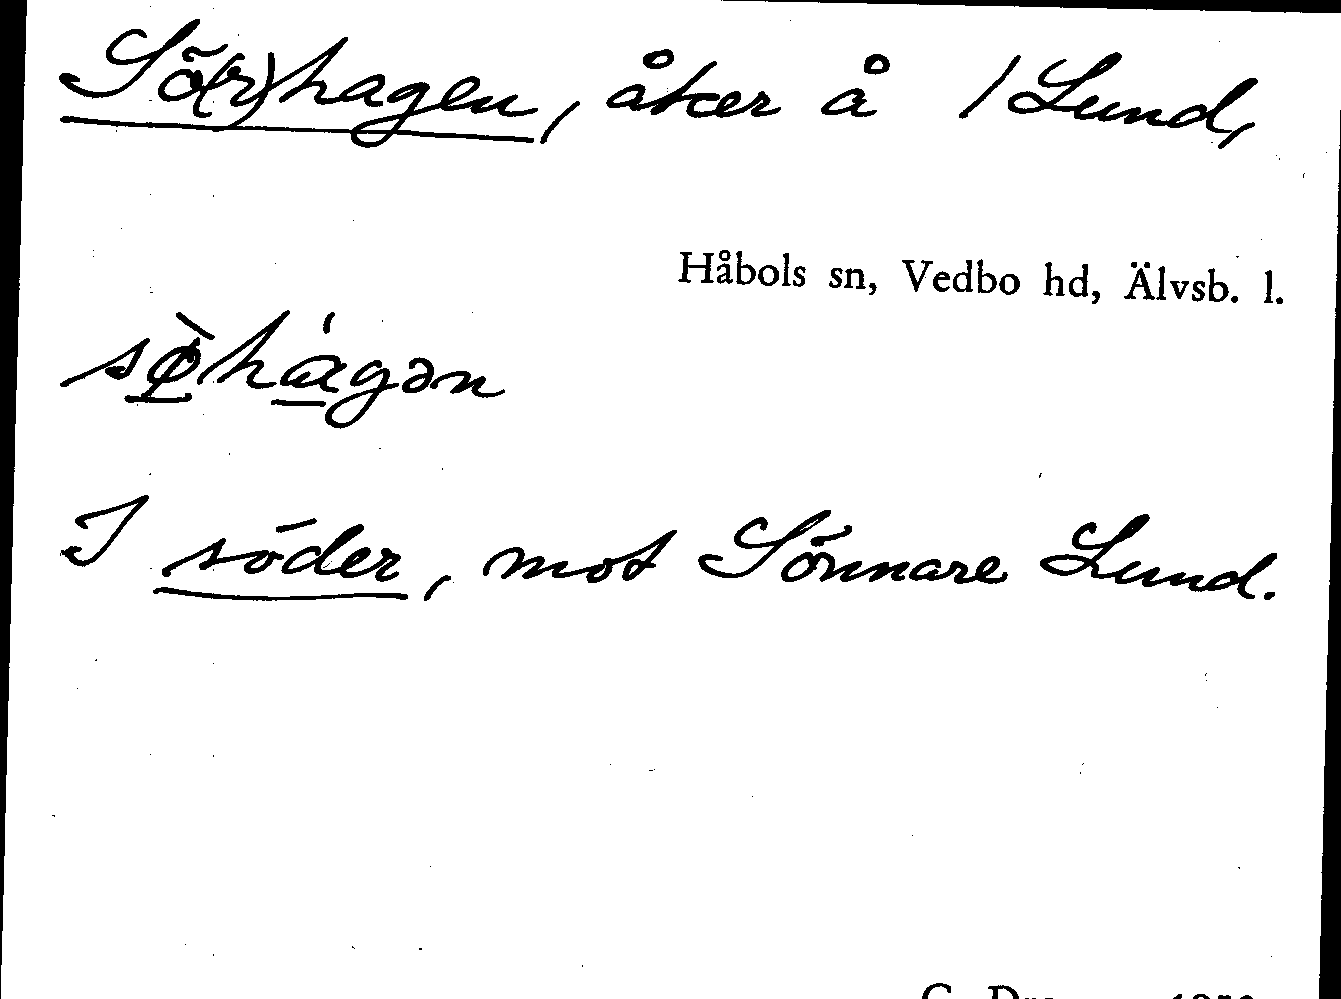 Sö(r)hagen, åker å /Lund,
Håbols sn, Vedbo hd, Älvsb. l.
sø̀hágən
I söder, mot Sönnare Lund.